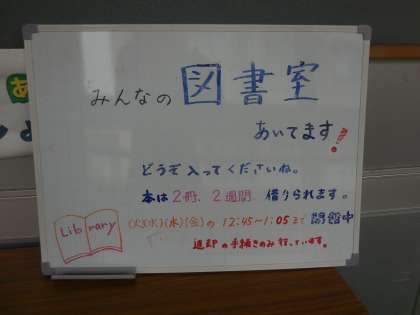 みんなの 図書室
あいてます!
どうぞ入ってくださいね。
本は2冊、2週間 借りられます。
Library
(火)(水)(木)(金)の 12:45~1:05まで 開館中
返却の手続きのみ 行っています。
あ